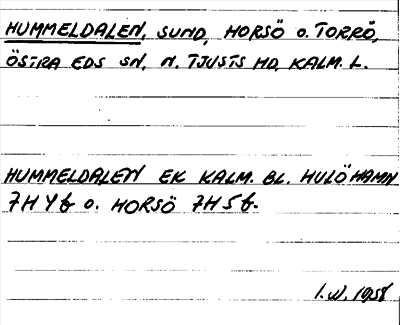 HUMMELDALEN, SUND, HORSÖ O. TORRÖ,
ÖSTRA EDS SN, N. TJUSTS HD, KALM. L.
HUMMELDALEN EK KALM. BL. HULÖHAMN
7H4b O. HORSÖ 7H5b.
I.W. 1958